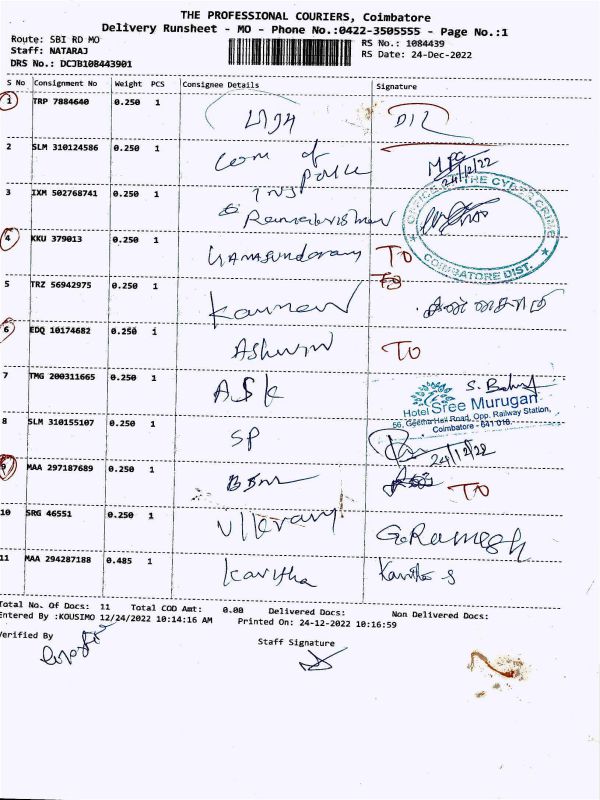 THE PROFESSIONAL COURIERS, Coimbatore
Delivery Runsheet - MO - Phone No.:0422-3505555 - Page No.:1
Route: SBI RD MO
RS No.: 1084439
Staff: NATARAJ
RS Date: 24-Dec-2022
DRS No.: DCJB108443901
S No Consignment No Weight PCS Consignee Details Signature
1 TRP 7884640 0.250 1
2 SLM 310124586 0.250 1 Com of Police 24/12/22
3 IXM 502768741 0.250 1 Ramakrishnan
OFFICE THE CYBER CRIME
COIMBATORE DIST.
4 KKU 379013 0.250 1 TO
5 TRZ 56942975 0.250 1 Kannan
6 EDQ 10174682 0.250 1 Ashwin TO
7 TMG 200311665 0.250 1 ASK
Hotel Sree Murugan
66, Geetha Hall Road, Opp. Railway Station,
Coimbatore - 641 018.
8 SLM 310155107 0.250 1 SP 24/12/22
9 MAA 297187689 0.250 1 TO
10 SRG 46551 0.250 1 G.Ramesh
11 MAA 294287188 0.485 1 Kavitha Kavitha S
Total No. Of Docs: 11 Total COD Amt: 0.00 Delivered Docs: Non Delivered Docs:
Entered By :KOUSIMO 12/24/2022 10:14:16 AM Printed On: 24-12-2022 10:16:59
Verified By
Staff Signature